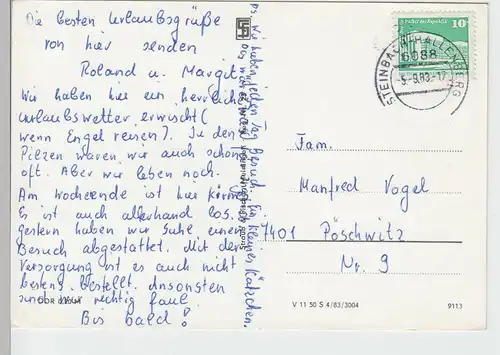 Die besten Urlaubsgrüße
von hier senden
Roland u. Margit.
Wir haben hier ein herrliches
Urlaubswetter erwischt (
wenn Engel reisen). In den
Pilzen waren wir auch schon
oft. Aber wir leben noch.
Am Wochenende ist hier Kirmes
Es ist auch allerhand los.
gestern haben wir Suhl einen
Besuch abgestattet. Mit der
Versorgung ist es auch nicht
bestens bestellt. Ansonsten
sind wir richtig faul.
Bis bald!
PS. Wir haben jeden Tag Besuch. Ein kleines Kätzchen.
10
STEINBACH-HALLENBERG
6088
-5.-9.83.-17
Fam.
Manfred Vogel
7401 Pöschwitz
Nr. 9
V 11 50 S 4/83/3004
9113